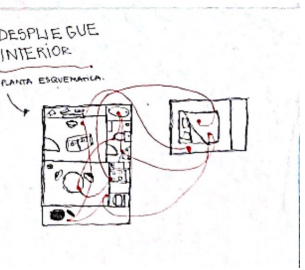 DESPLIEGUE
INTERIOR
PLANTA ESQUEMATICA.